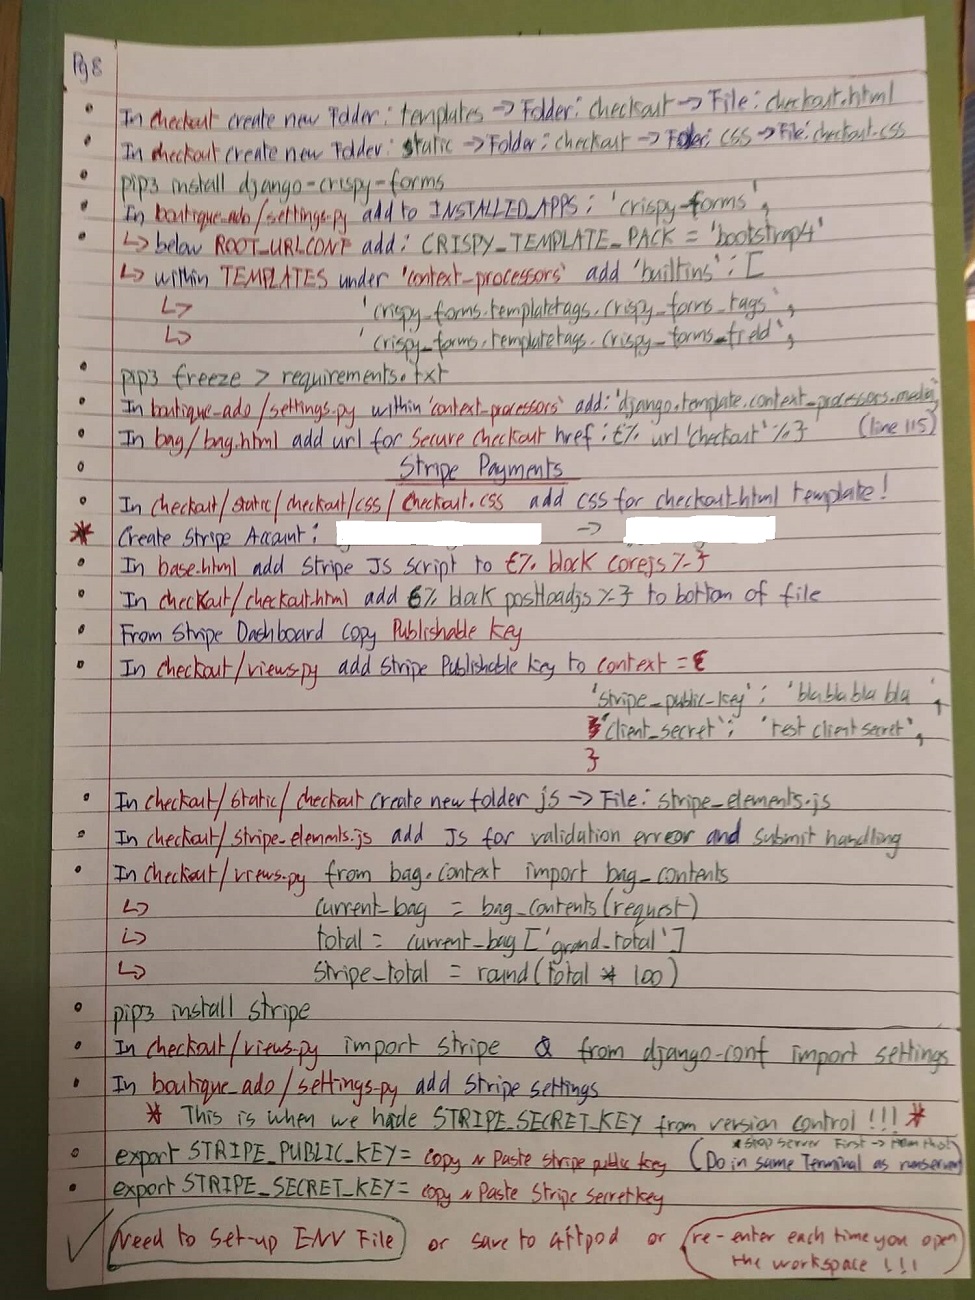 Pg 8
In checkout create new Folder: templates → Folder: checkout → File: checkout.html
In checkout create new Folder: static → Folder: checkout → Folder: css → File: checkout.css
pip3 install django-crispy-forms
In boutique_ado/settings.py add to INSTALLED_APPS: 'crispy-forms',
↳ below ROOT_URLCONF add: CRISPY_TEMPLATE_PACK = 'bootstrap4'
↳ within TEMPLATES under 'context-processors' add 'builtins': [
↳ 'crispy_forms.templatetags.crispy_forms_tags',
↳ 'crispy_forms.templatetags.crispy_forms_field',
pip3 freeze > requirements.txt
In boutique_ado/settings.py within 'context-processors' add: 'django.template.context_processors.media',
In bag/bag.html add url for Secure checkout href: {% url 'checkout' %} (line 115)
Stripe Payments
In checkout/static/checkout/css/checkout.css add css for checkout.html template!
* Create Stripe Account: →
In base.html add Stripe JS script to {% block corejs %}
In checkout/checkout.html add {% block postloadjs %} to bottom of file
From Stripe Dashboard copy Publishable key
In checkout/views.py add Stripe Publishable key to context = {
'stripe_public_key': 'bla bla bla bla',
'client_secret': 'test client secret',
}
In checkout/static/checkout create new folder js → File: stripe_elements.js
In checkout/stripe_elements.js add JS for validation error and submit handling
In checkout/views.py from bag.context import bag_contents
↳ current_bag = bag_contents(request)
↳ total = current_bag['grand_total']
↳ stripe_total = round(total * 100)
pip3 install stripe
In checkout/views.py import stripe & from django-conf import settings
In boutique_ado/settings.py add stripe settings
* This is when we hade STRIPE_SECRET_KEY from version control !!! *
* Stop server First → then that
export STRIPE_PUBLIC_KEY= copy n Paste Stripe public key (Do in same Terminal as runserver)
export STRIPE_SECRET_KEY= copy n Paste Stripe secret key
✓ Need to set-up ENV File or save to gitpod or re-enter each time you open
the workspace !!!